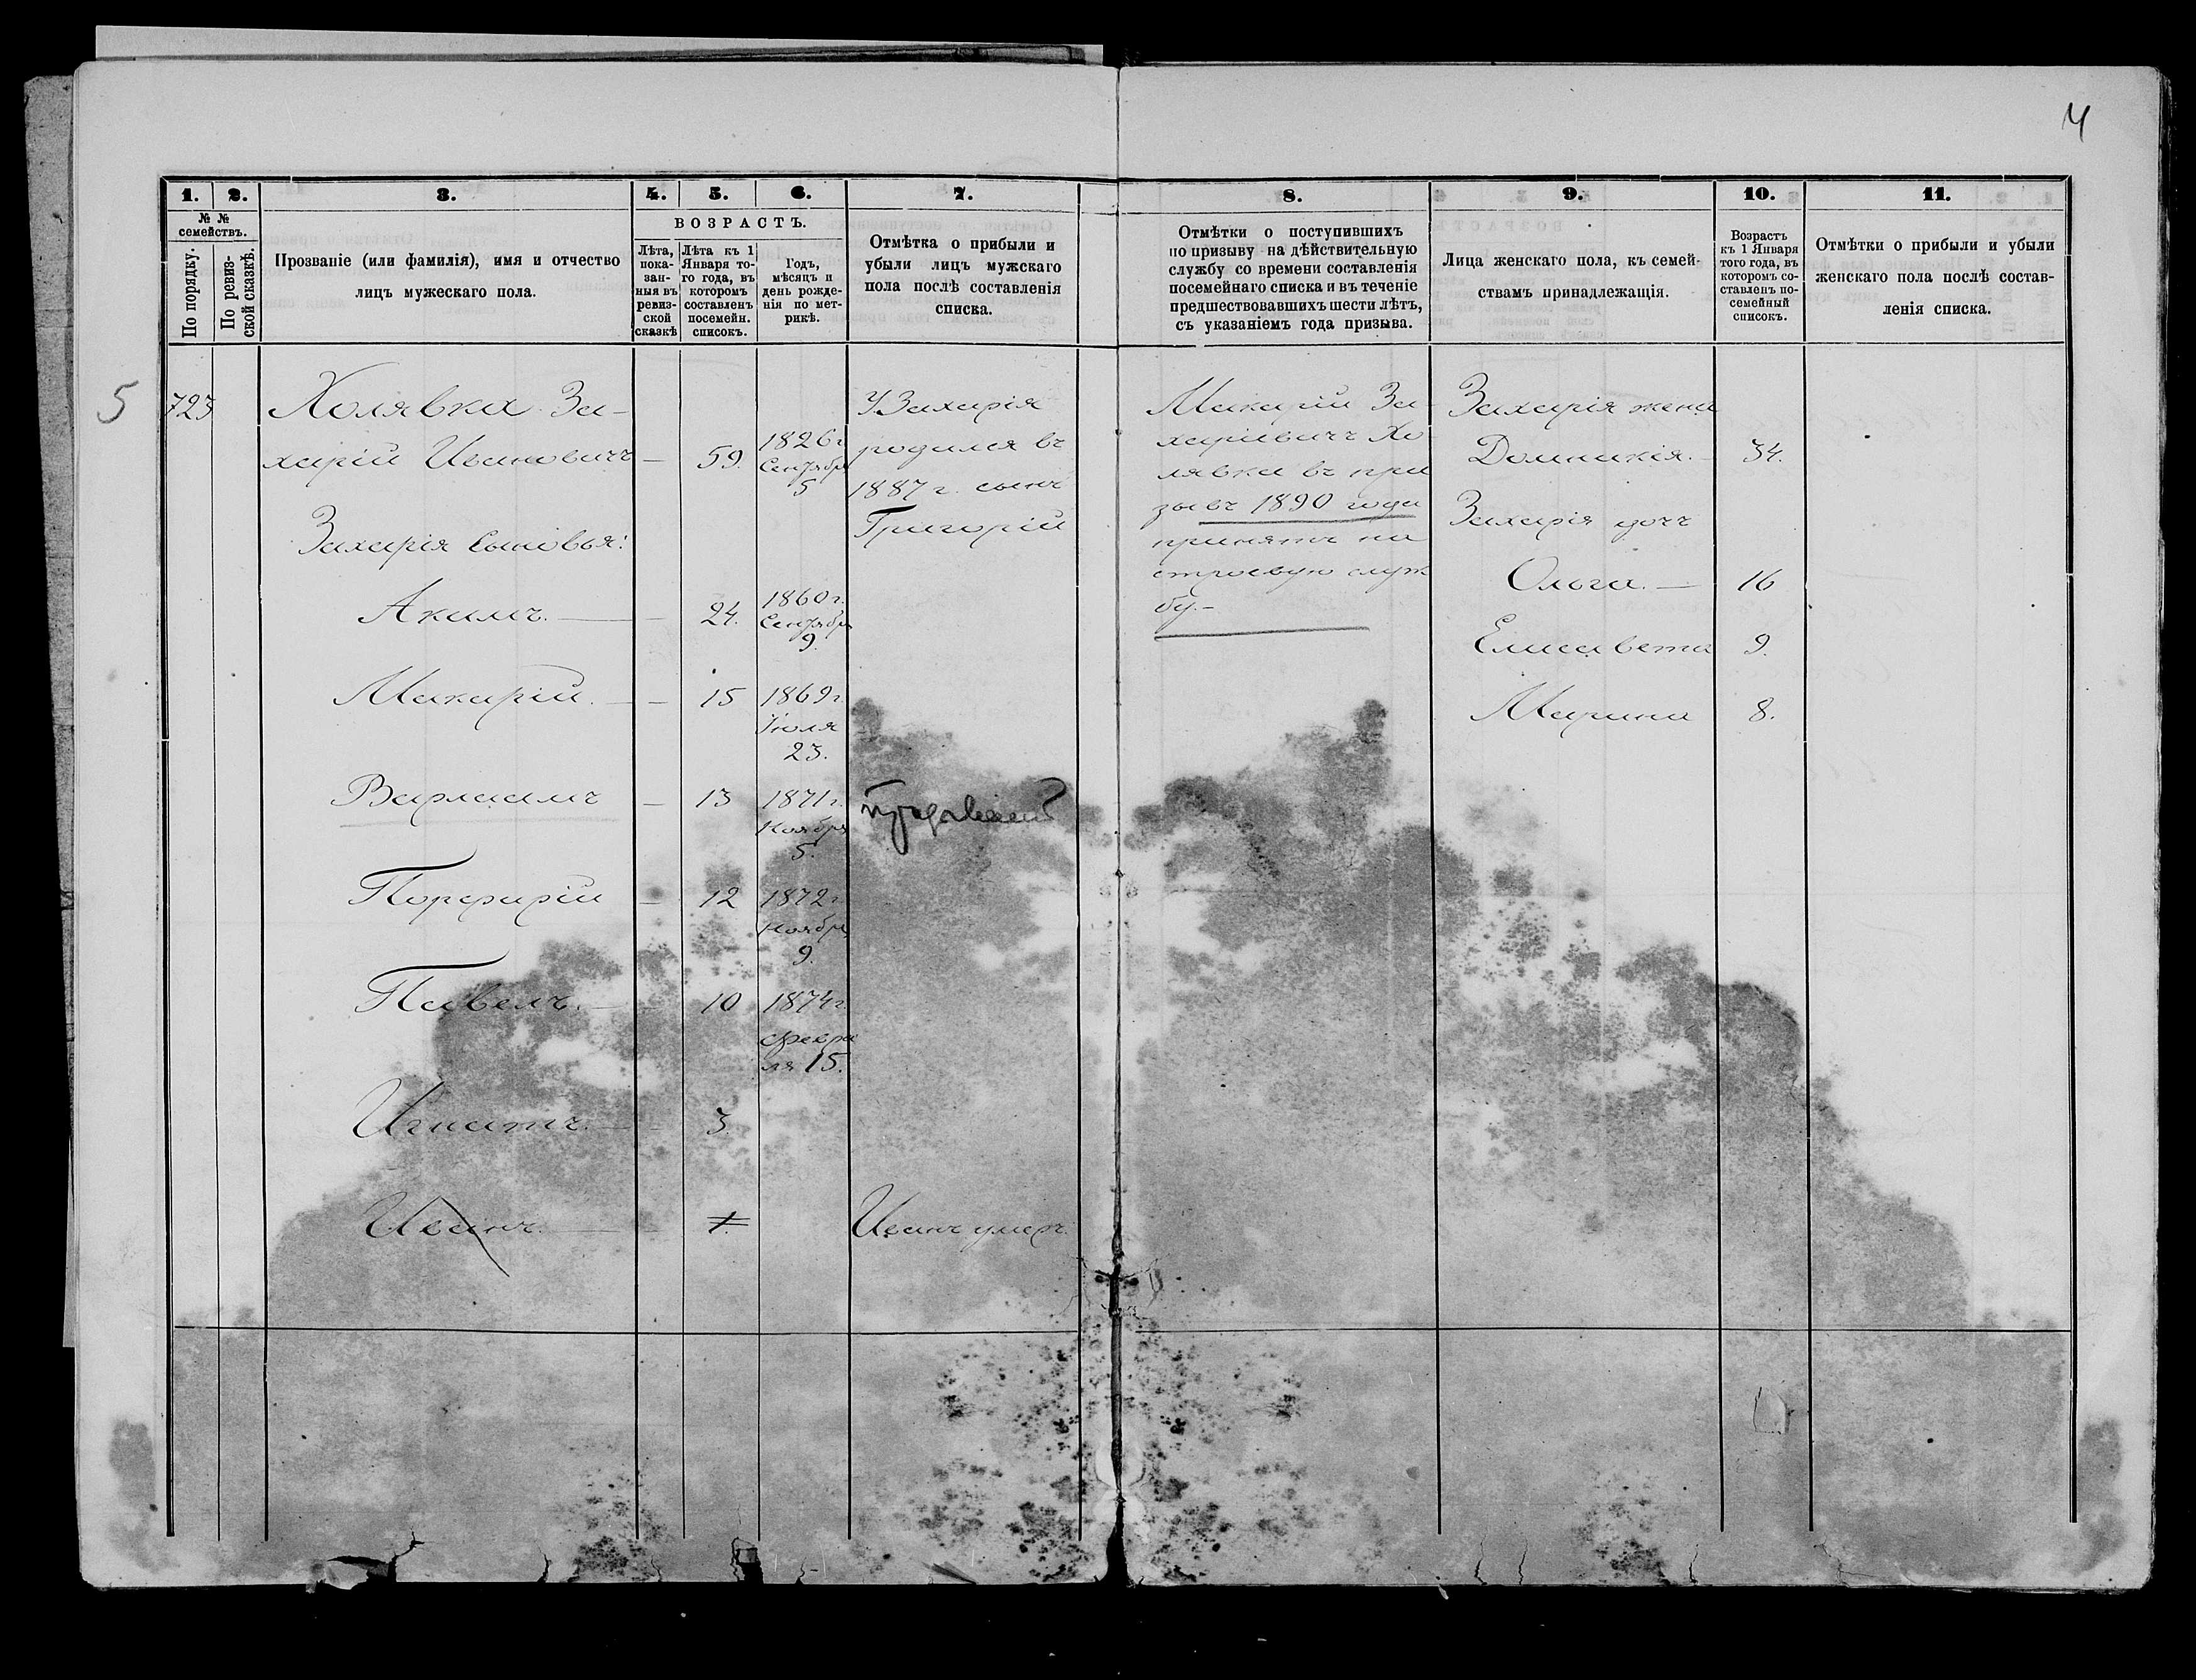 4
1. 2. 3. 4. 5. 6. 7. 8. 9. 10. 11.
№ №
семействъ.
По порядку.
По ревиз-
ской сказкѣ.
Прозваніе (или фамилія), имя и отчество
лицъ мужескаго пола.
ВОЗРАСТЪ.
Лѣта,
пока-
зан-
ныя въ
ревиз-
ской
сказкѣ
Лѣта къ 1
Января то-
го года, въ
которомъ
составленъ
посемейн.
списокъ.
Годъ,
мѣсяцъ и
день рожде-
нія по мет-
рикѣ.
Отмѣтка о прибыли и
убыли лицъ мужскаго
пола послѣ составленія
списка.
Отмѣтки о поступившихъ
по призыву на дѣйствительную
службу со времени составленія
посемейнаго списка и въ теченіе
предшествовавшихъ шести лѣтъ,
съ указаніемъ года призыва.
Лица женскаго пола, къ семей-
ствамъ принадлежащія.
Возрастъ
къ 1 Января
того года, въ
которомъ со-
ставленъ по-
семейный
списокъ.
Отмѣтки о прибыли и убыли
женскаго пола послѣ состав-
ленія списка.
5
723
Холявка За-
харій Ивановичъ — 59. 1826 г.
Сентября
5
Захарія сыновья:
Акимъ. — 24. 1860 г.
Сентября
9.
Макарій. — 15 1869 г.
Іюля
23.
Варлаамъ — 13 1871 г.
Ноября
5.
Порфирій — 12 1872 г.
Ноября
9.
Павелъ. — 10 1874 г.
Февра
ля 15.
Игнатъ. — 3.
Иванъ. —
У Захарія
родился въ
1887 г. сынъ
Григорій
Иванъ умеръ.
Макарій За-
харіевичъ Хо
лявка въ при
зывъ 1890 года
принятъ на
строевую служ
бу.-
Захарія жена
Домникія. — 34.
Захарія доч
Ольга. — 16
Елисавета 9.
Марина 8.